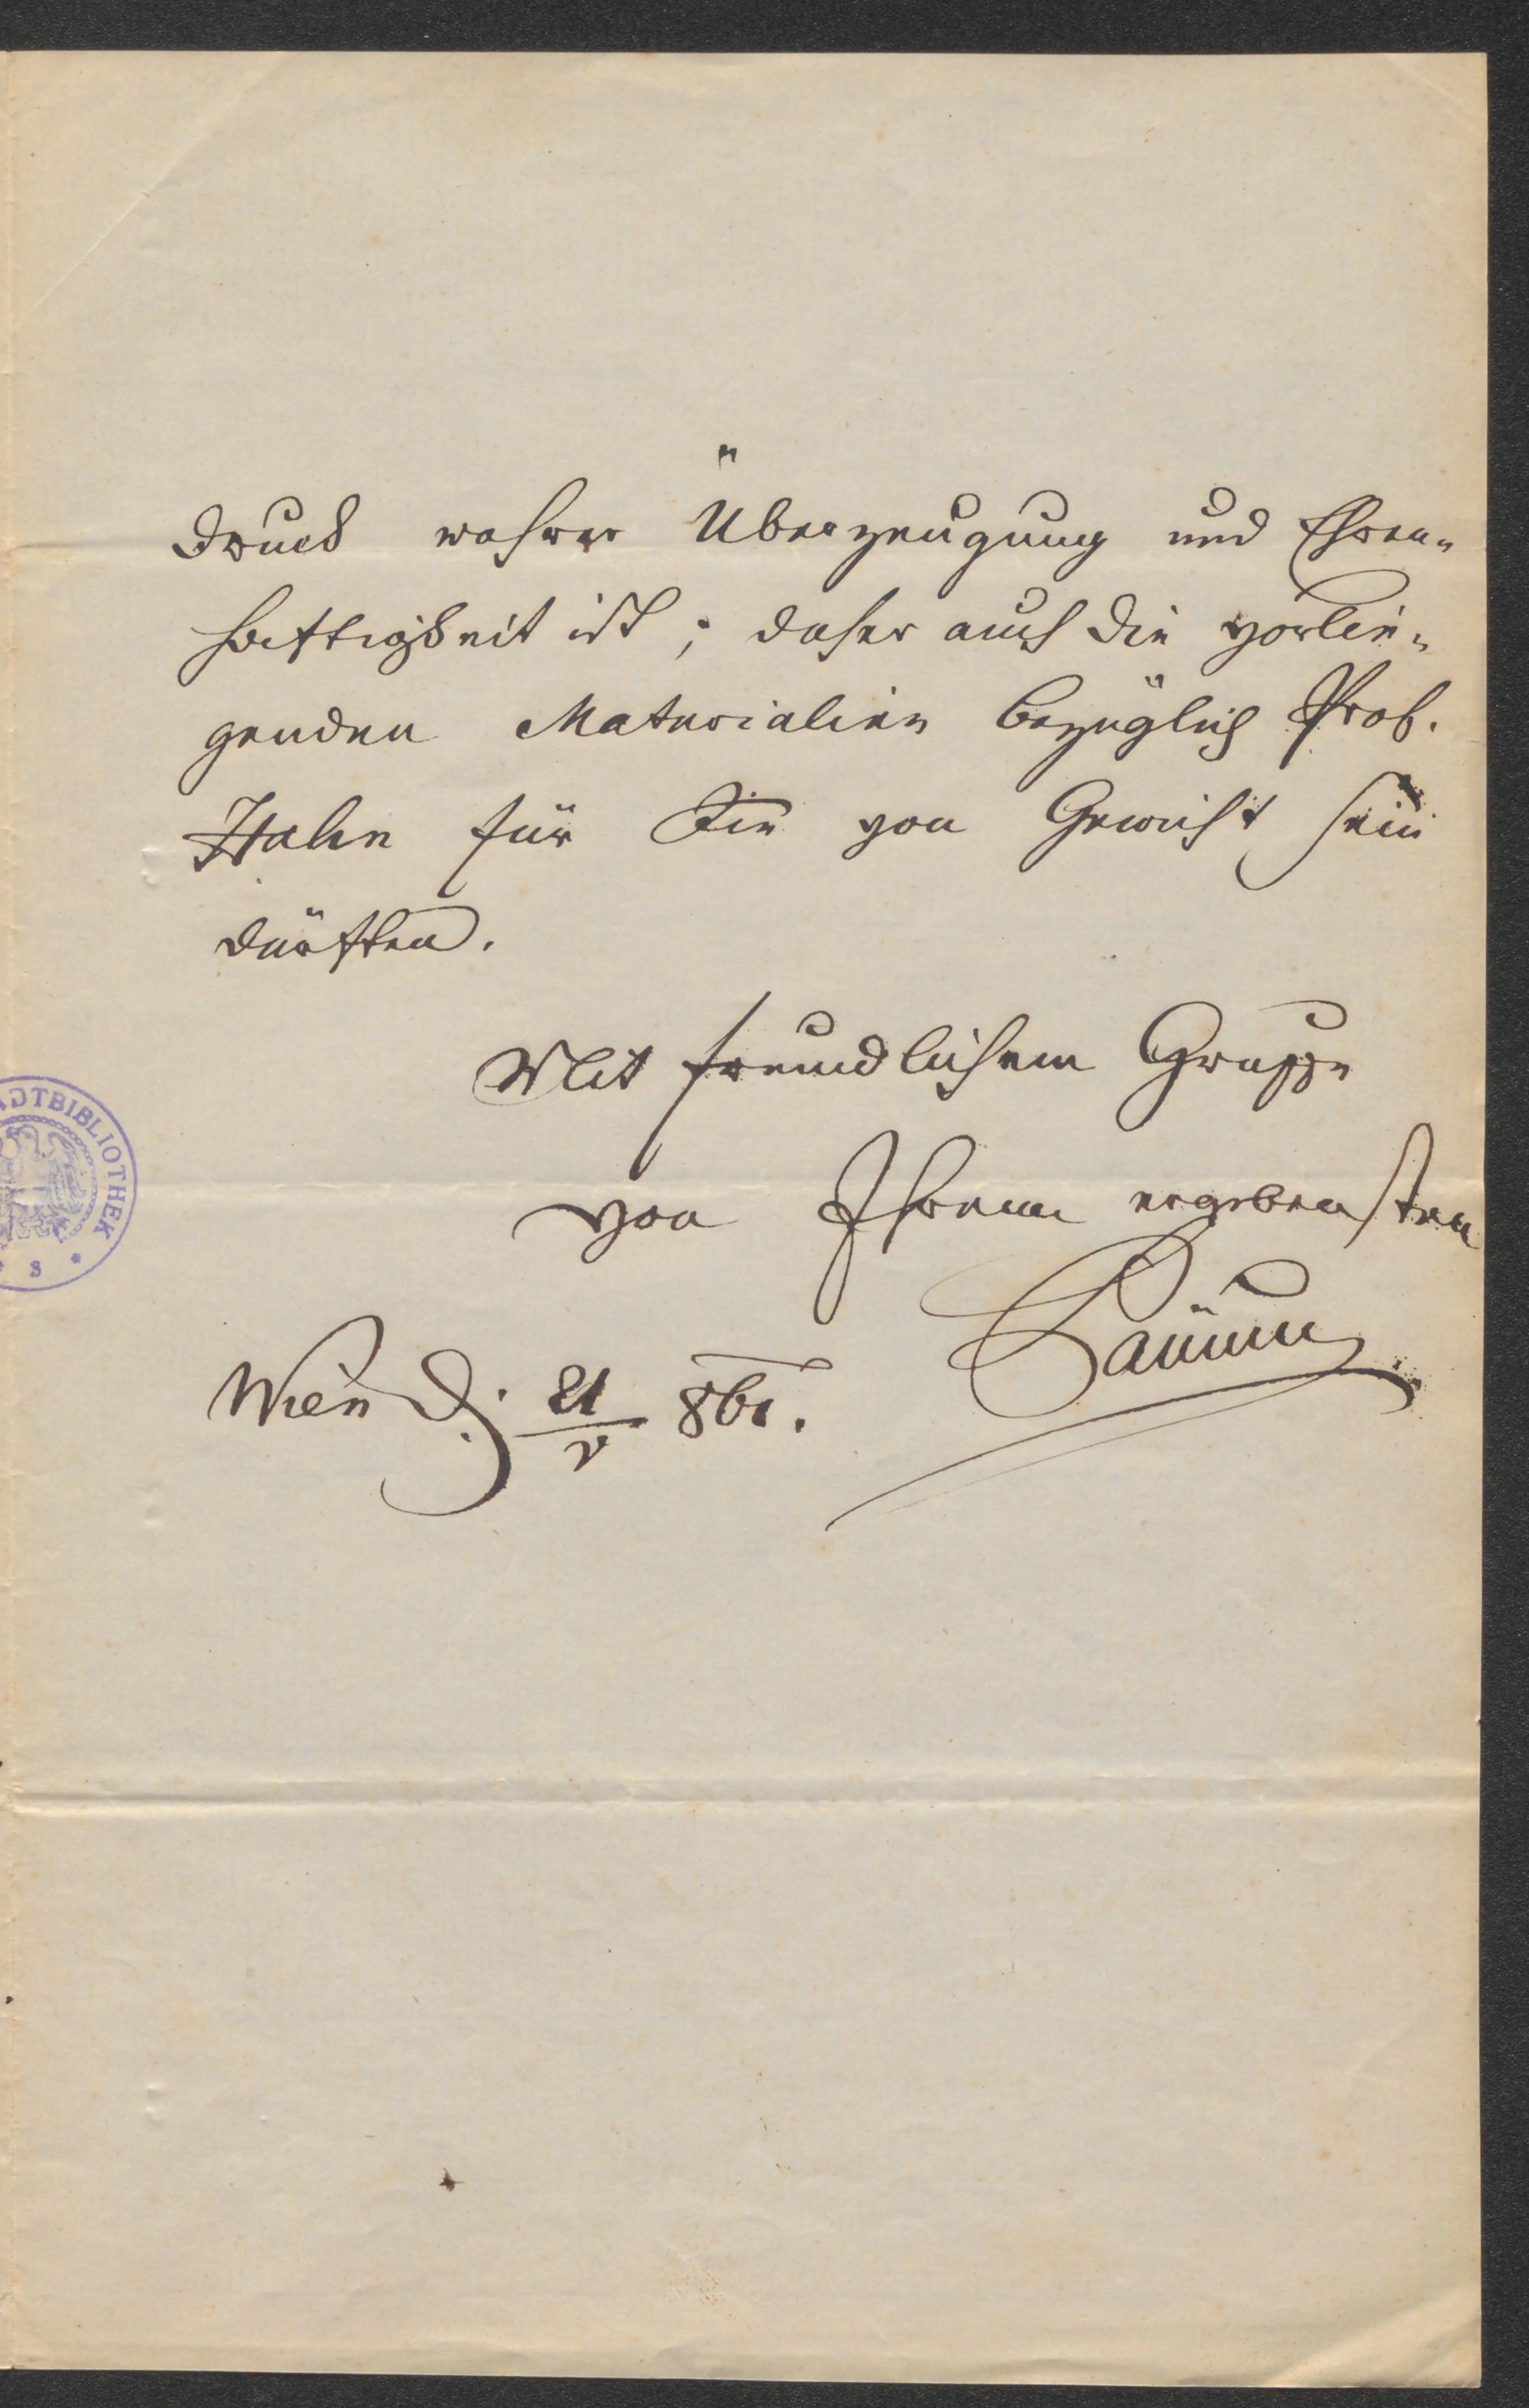 druck wahrer Überzeugung und Ehren-
haftigkeit ist; daher auch die vorlie-
genden Materialien bezüglich Prof.
Hahn für Sie von Gewicht sein
dürften.
Mit freundlichem Grusse
von Ihrem ergebensten
Wien d. 21/V 861.
DTBIBLIOTHEK